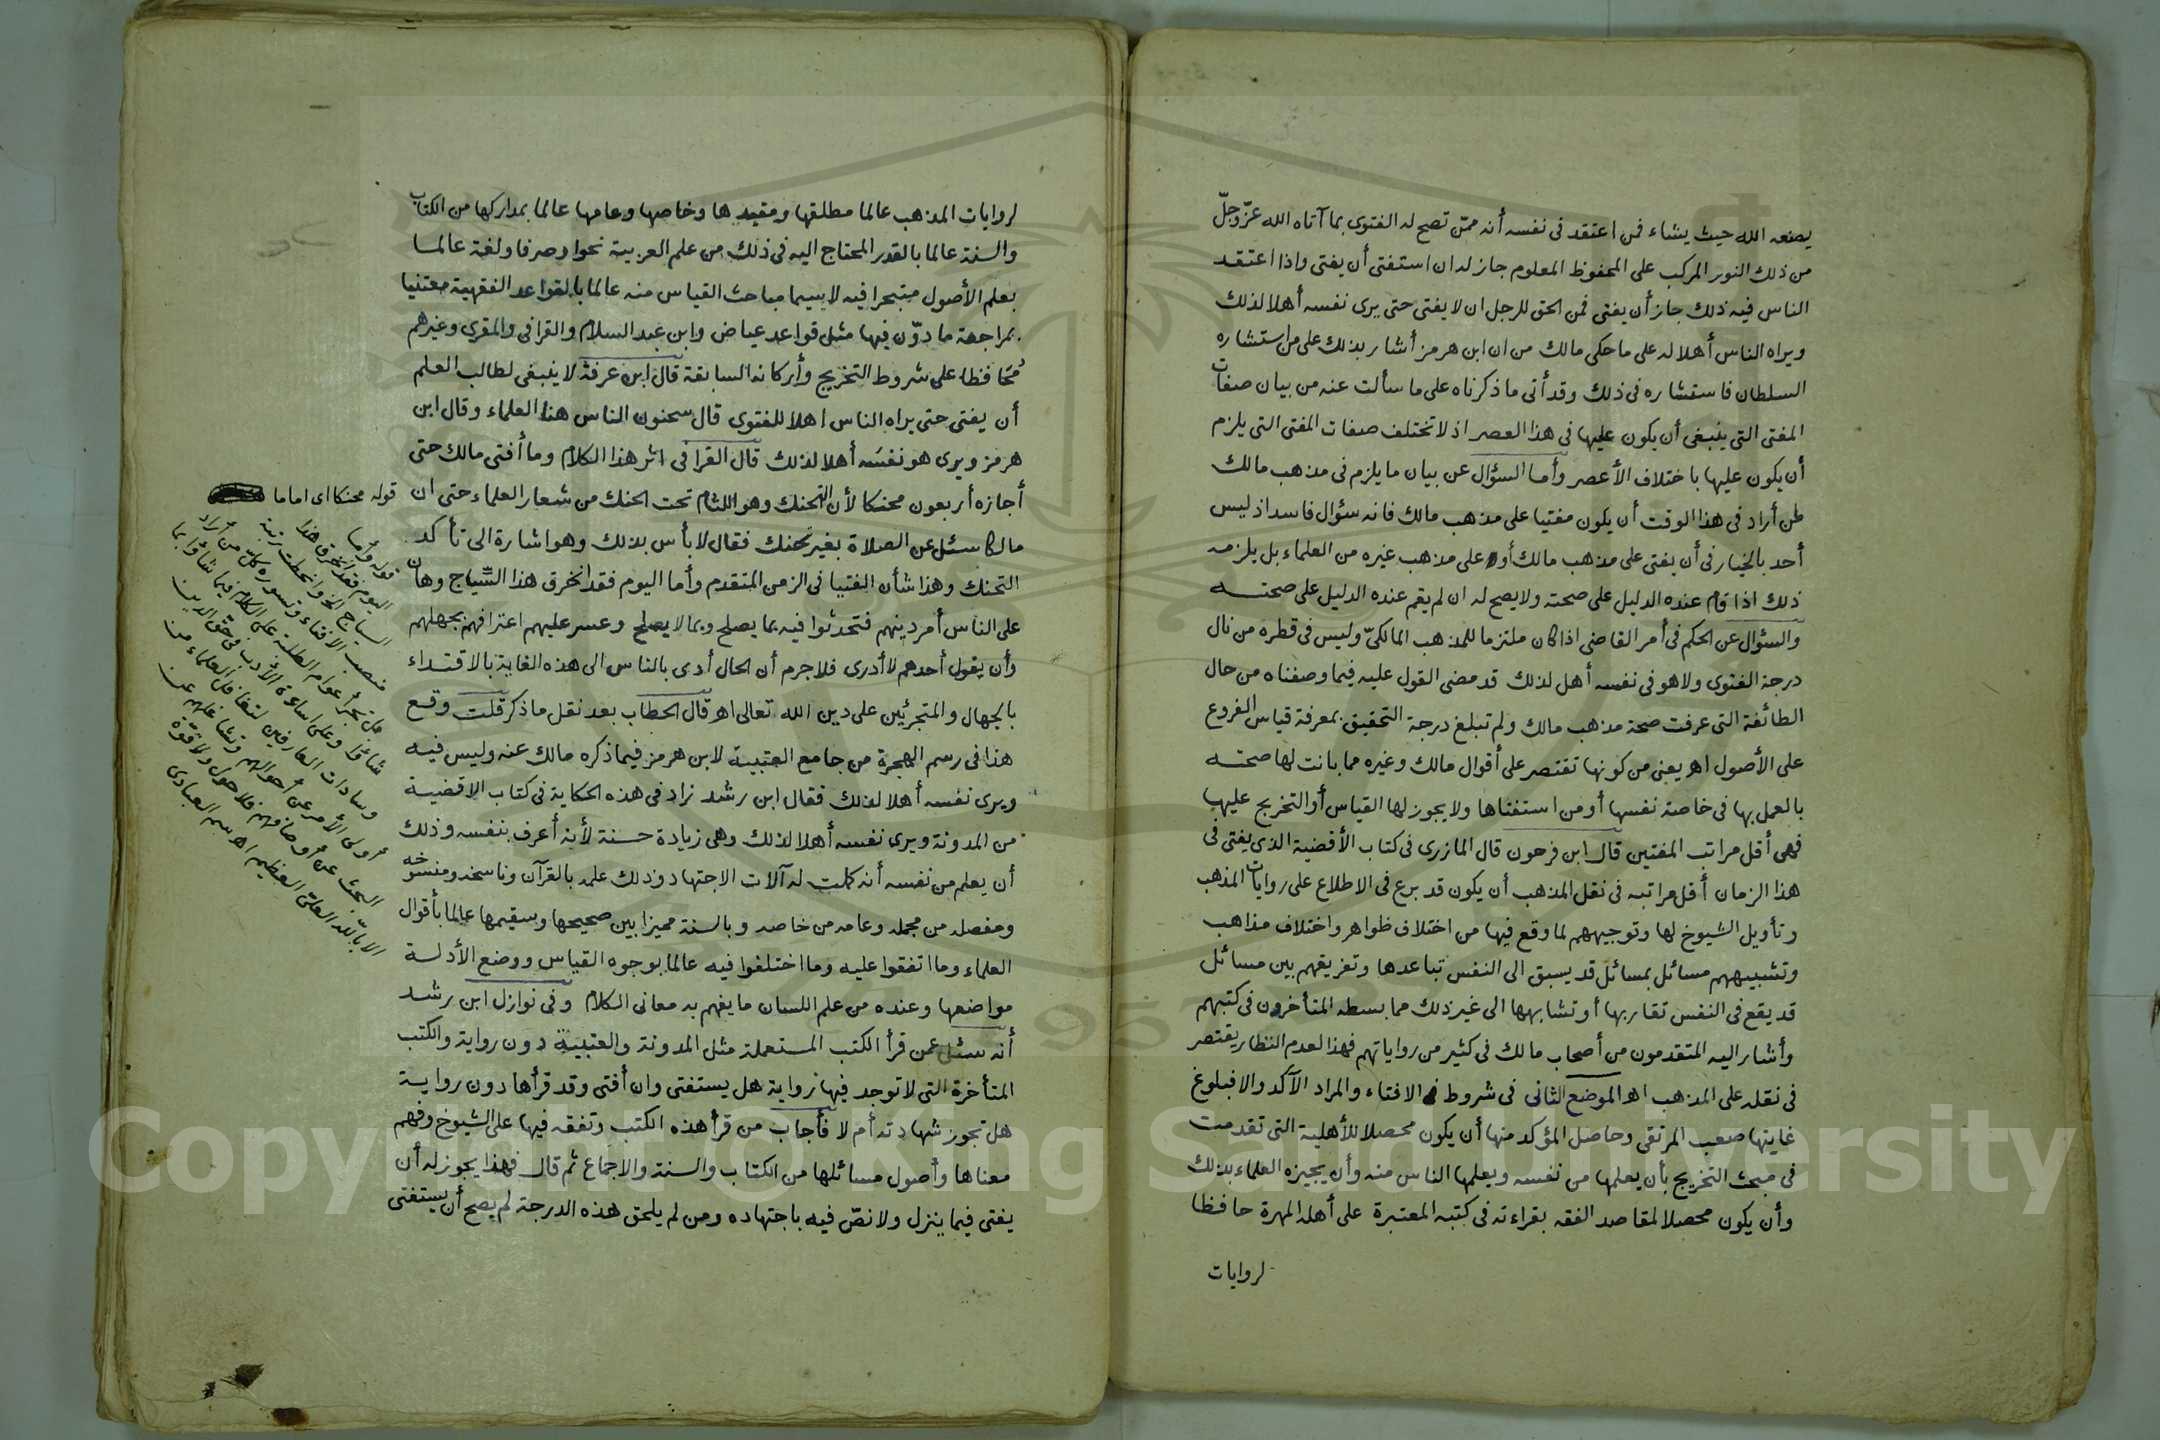 يصنعه الله حيث يشاء فمن اعتقد في نفسه أنه ممّن تصح له الفتوى بما آتاه الله عزّ وجلّ
من ذلك النور المركب على المحفوظ المعلوم جاز له ان استفتى أن يفتى واذا اعتقد
الناس فيه ذلك جاز أن يفتى فمن الحق للرجل ان لا يفتى حتى يرى نفسه أهلا لذلك
ويراه الناس أهلا له على ما حكى مالك من ان ابن هرمز أشار بذلك على من استشاره
السلطان فاستشاره في ذلك وقد أتى ما ذكرناه على ما سألت عنه من بيان صفات
المفتى التي ينبغى أن يكون عليها في هذا العصر اذ لا تختلف صفات المفتى التي يلزم
أن يكون عليها باختلاف الأعصر وأما السؤال عن بيان ما يلزم في مذهب مالك
لمن أراد في هذا الوقت أن يكون مفتيا على مذهب مالك فانه سؤال فاسد اذ ليس
أحد بالخيار في أن يفتى على مذهب مالك أو على مذهب غيره من العلماء بل يلزمه
ذلك اذا قام عنده الدليل على صحته ولا يصح له ان لم يقم عنده الدليل على صحته
والسؤال عن الحكم في أمر القاضى اذا كان ملتزما للمذهب المالكىّ وليس في قطره من نال
درجة الفتوى ولا هو في نفسه أهل لذلك قد مضى القول عليه فيما وصفناه من حال
الطائفة التي عرفت صحة مذهب مالك ولم تبلغ درجة التحقيق بمعرفة قياس الفروع
على الأصول اهـ يعنى من كونها تقتصر على أقوال مالك وغيره مما بانت لها صحته
بالعمل بها في خاصة نفسها أو من استفتاها ولا يجوز لها القياس أو التخريج عليها
فهى أقل مراتب المفتين قال ابن فرحون قال المازرى في كتاب الأقضية الذى يفتى في
هذا الزمان أقل مراتبه في نقل المذهب أن يكون قد برع في الاطلاع على روايات المذهب
وتأويل الشيوخ لها وتوجيههم لما وقع فيها من اختلاف ظواهر واختلاف مذاهب
وتشبيههم مسائل بمسائل قد يسبق الى النفس تباعدها وتفريقهم بين مسائل
قد يقع في النفس تقاربها أو تشابهها الى غير ذلك مما بسطه المتأخرون في كتبهم
وأشار اليه المتقدمون من أصحاب مالك في كثير من رواياتهم فهذا لعدم النظار يقتصر
في نقله على المذهب اهـ الموضع الثانى في شروط الافتاء والمراد الآكد والا فبلوغ
غايتها صعب المرتقى وحاصل المؤكد منها أن يكون محصلا للأهلية التي تقدمت
في مبحث التخريج بأن يعلمها من نفسه ويعلمها الناس منه وأن يجيزه العلماء بذلك
وأن يكون محصلا لمقاصد الفقه بقراءته في كتبه المعتبرة على أهله المهرة حافظا
لروايات
لروايات المذهب عالما مطلقها ومقيدها وخاصها وعامها عالما بمداركها من الكتاب
والسنة عالما بالقدر المحتاج اليه في ذلك من علم العربية نحوا وصرفا ولغة عالما
بعلم الأصول متبحرا فيه لا سيما مباحث القياس منه عالما بالقواعد الفقهية معتنيا
بمراجعة ما دوّن فيها مثل قواعد عياض وابن عبد السلام والقرافى والمقرى وغيرهم
مُحَافظا على شروط التخريج وأركانه السابقة قال ابن عرفة لا ينبغى لطالب العلم
أن يفتى حتى يراه الناس اهلا للفتوى قال سحنون الناس هنا العلماء وقال ابن
هرمز ويرى هو نفسَه أهلا لذلك قال القرافى اثر هذا الكلام وما أفتى مالك حتى
أجازه أربعون محنكا لأن التحنك وهو اللثام تحت الحنك من شعار العلماء حتى ان
مالكا سئل عن الصلاة بغير تحنك فقال لا بأس بذلك وهو اشارة الى تأكد
التحنك وهذا شأن الفتيا في الزمن المتقدم وأما اليوم فقد انخرق هذا السّياج وهان
على الناس أمر دينهم فتحدثوا فيه بما يصلح وبما لا يصلح وعسر عليهم اعترافهم بجهلهم
وأن يقول أحدهم لا أدرى فلا جرم أن الحال أدى بالناس الى هذه الغاية بالاقتداء
بالجهال والمتجرئين على دين الله تعالى اهـ قال الحطاب بعد نقل ما ذكر قلت وقع
هذا في رسم الهجرة من جامع العتبية لابن هرمز فيما ذكره مالك عنه وليس فيه
ويرى نفسه أهلا لذلك فقال ابن رشد زاد في هذه الحكاية في كتاب الاقضية
من المدونة ويرى نفسه أهلا لذلك وهى زيادة حسنة لأنه أعرف بنفسه وذلك
أن يعلم من نفسه أنه كملت له آلات الاجتهاد وذلك علمه بالقرآن وناسخه ومنسوخه
ومفصله من مجمله وعامه من خاصه وبالسنة مميزا بين صحيحها وسقيمها عالما بأقوال
العلماء وما اتفقوا عليه وما اختلفوا فيه عالما بوجوه القياس ووضع الأدلة
مواضعها وعنده من علم اللسان ما يفهم به معانى الكلام وفي نوازل ابن رشد
أنه سئل عمن قرأ الكتب المستعملة مثل المدونة والعتبية دون رواية والكتب
المتأخرة التي لا توجد فيها رواية هل يستفتى وان أفتى وقد قرأها دون رواية
هل تجوز شهادته أم لا فأجاب من قرأ هذه الكتب وتفقه فيها على الشيوخ وفهم
معناها وأصول مسائلها من الكتاب والسنة والاجماع ثم قال فهذا يجوز له أن
يفتى فيما ينزل ولا نصّ فيه باجتهاده ومن لم يلحق هذه الدرجة لم يصح أن يستفتى
قوله محنكا اى اماما
قوله وأما
اليوم فقد انخرق هذا
السياج الخ وانحطت رتبة
منصب الافتاء وتسوره كل من أراد
بل تجرأ عوام الطلبة على الكلام فيما شاؤا بما
شاؤا وعلى اساءة الأدب في حق الدين
وسادات العارفين لتغافل العلماء من
أولى الأمر عن أحوالهم وتشاغلهم عن
البحث عن أوصافهم فلا حول ولا قوة
الا بالله العلىّ العظيم اهـ سم العبادى
Copyright © King Saud University